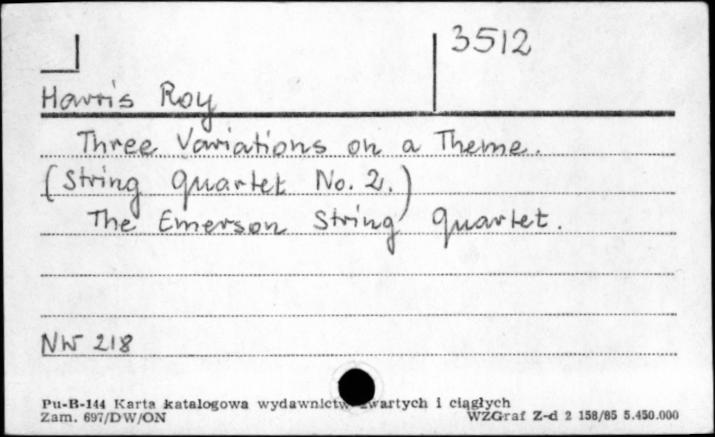 3512
Harris Roy
Three Variations on a Theme.
(String Quartet No. 2.)
The Emerson String Quartet.
NW 218
Pu-B-144 Karta katalogowa wydawnictw zwartych i ciągłych
Zam. 697/DW/ON WZGraf Z-d 2 158/85 5.450.000